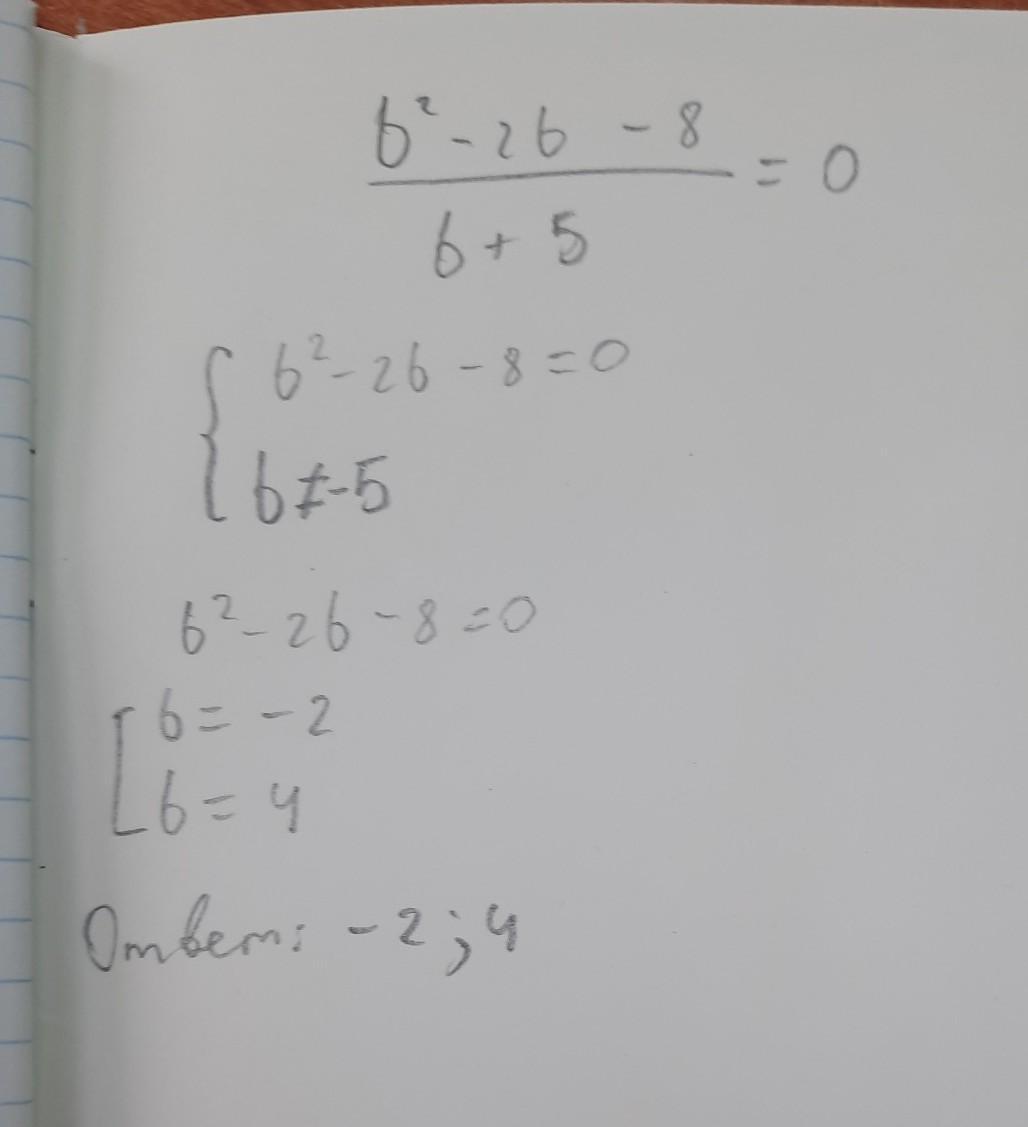 b² - 2b - 8
b + 5
= 0
{ b² - 2b - 8 = 0
b ≠ -5
b² - 2b - 8 = 0
[ b = -2
b = 4
Ответ: -2; 4